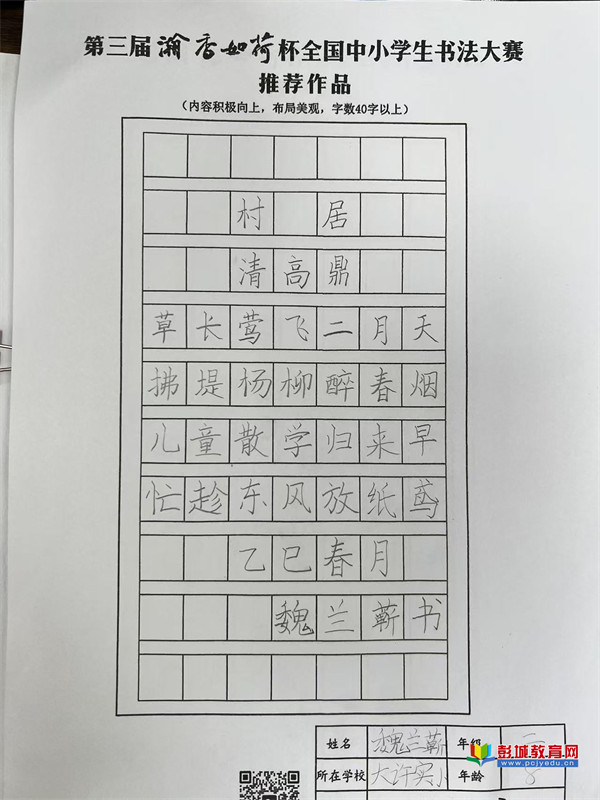 第三届瀚香如荷杯全国中小学生书法大赛
推荐作品
（内容积极向上，布局美观，字数40字以上）
村居
清高鼎
草长莺飞二月天
拂堤杨柳醉春烟
儿童散学归来早
忙趁东风放纸鸢
乙巳春月
魏兰蕲书
姓名 魏兰蕲 年级 二
所在学校 大许实小 年龄 8
彭城教育网
www.pcjyedu.cn